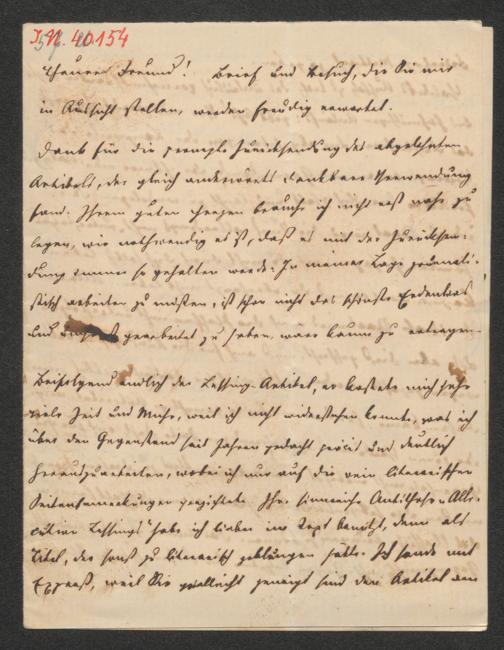 I.N. 40.154
Theurer Freund! Brief und Besuch, die Sie mir
in Aussicht stellen, werden freudig erwartet.
Dank für die prompte Zurücksendung des abgelehnten
Artikels, der gleich anderwärts dankbare Verwendung
fand. Ihrem guten Herzen brauche ich nicht erst nahe zu
legen, wie nothwendig es ist, daß es mit der Zurücksen-
dung immer so gehalten werde. In meiner Lage journali-
stisch arbeiten zu müssen, ist schon nicht das schönste Erdenloos
und umsonst gearbeitet zu haben, wäre kaum zu ertragen.
Beifolgend endlich der Lessing-Artikel, er kostete mich sehr
viele Zeit und Mühe, weil ich nicht widerstehen konnte, was ich
über den Gegenstand seit Jahren gedacht präcis und deutlich
herauszuarbeiten, wobei ich nur auf die rein literarischen
Seitenbemerkungen verzichtete. Ihre sinnreiche Antithese
Lessings habe ich lieber im Text benützt, denn als
Titel, der sonst zu literarisch geklungen hätte. Ich sende mit
Expreß, weil Sie vielleicht geneigt sind den Artikel am